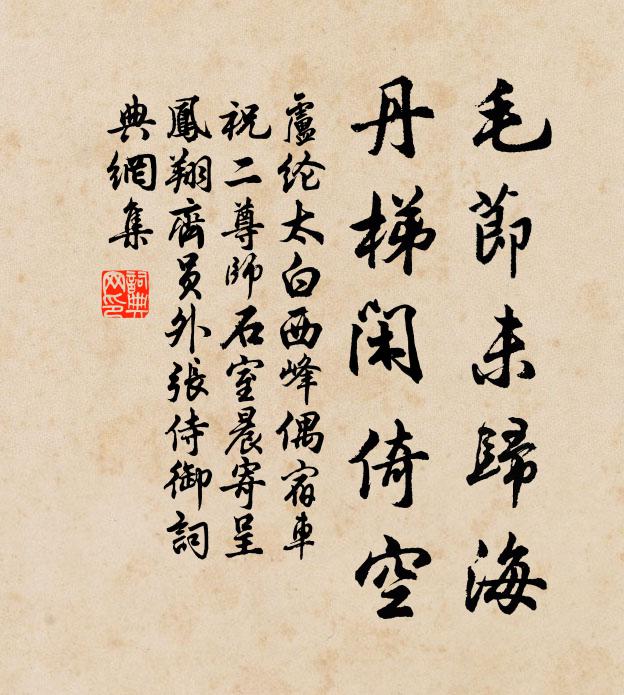 毛節未歸海
丹梯閑倚空
盧纶太白西峰偶宿車
祝二尊師石室晨寄呈
鳳翔齊员外張侍御詞
典網集
詞典网印